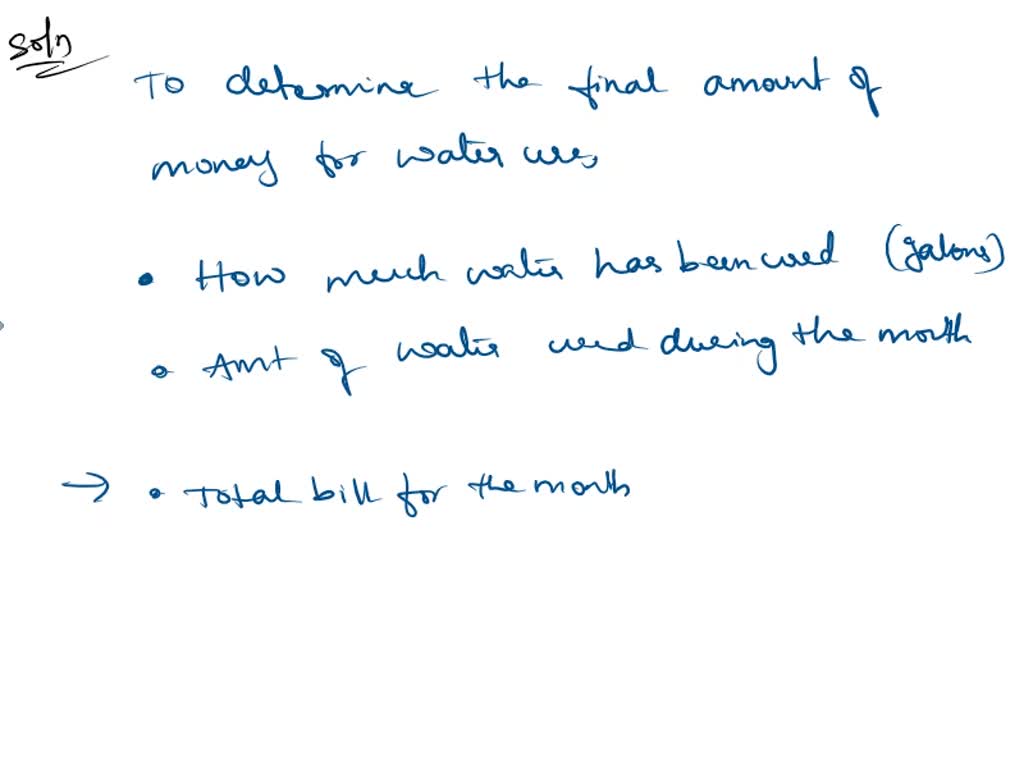 Soln
To determine the final amount of
money for water uses
• How much water has been used (galons)
• Amt of water used during the month
→ • Total bill for the month